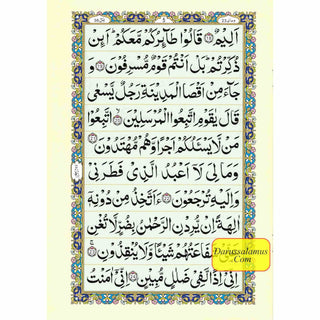 اَلِيۡمٌ ۝ قَالُوۡا طَآئِرُكُمۡ مَّعَكُمۡ ؕ اَئِنۡ
ذُكِّرۡتُمۡ ؕ بَلۡ اَنۡتُمۡ قَوۡمٌ مُّسۡرِفُوۡنَ ۝ وَ
جَآءَ مِنۡ اَقۡصَا الۡمَدِيۡنَةِ رَجُلٌ يَّسۡعٰى
قَالَ يٰقَوۡمِ اتَّبِعُوا الۡمُرۡسَلِيۡنَ ۝ اتَّبِعُوۡا
مَنۡ لَّا يَسۡـَٔلُكُمۡ اَجۡرًا وَّهُمۡ مُّهۡتَدُوۡنَ ۝
وَمَا لِىَ لَاۤ اَعۡبُدُ الَّذِىۡ فَطَرَنِىۡ
وَاِلَيۡهِ تُرۡجَعُوۡنَ ۝ ءَاَتَّخِذُ مِنۡ دُوۡنِهٖۤ
اٰلِهَةً اِنۡ يُّرِدۡنِ الرَّحۡمٰنُ بِضُرٍّ لَّا تُغۡنِ
عَنِّىۡ شَفَاعَتُهُمۡ شَيۡـًٔا وَّلَا يُنۡقِذُوۡنِ ۝
اِنِّىۡۤ اِذًا لَّفِىۡ ضَلٰلٍ مُّبِيۡنٍ ۝ اِنِّىۡۤ اٰمَنۡتُ
Darussalamus
.Com